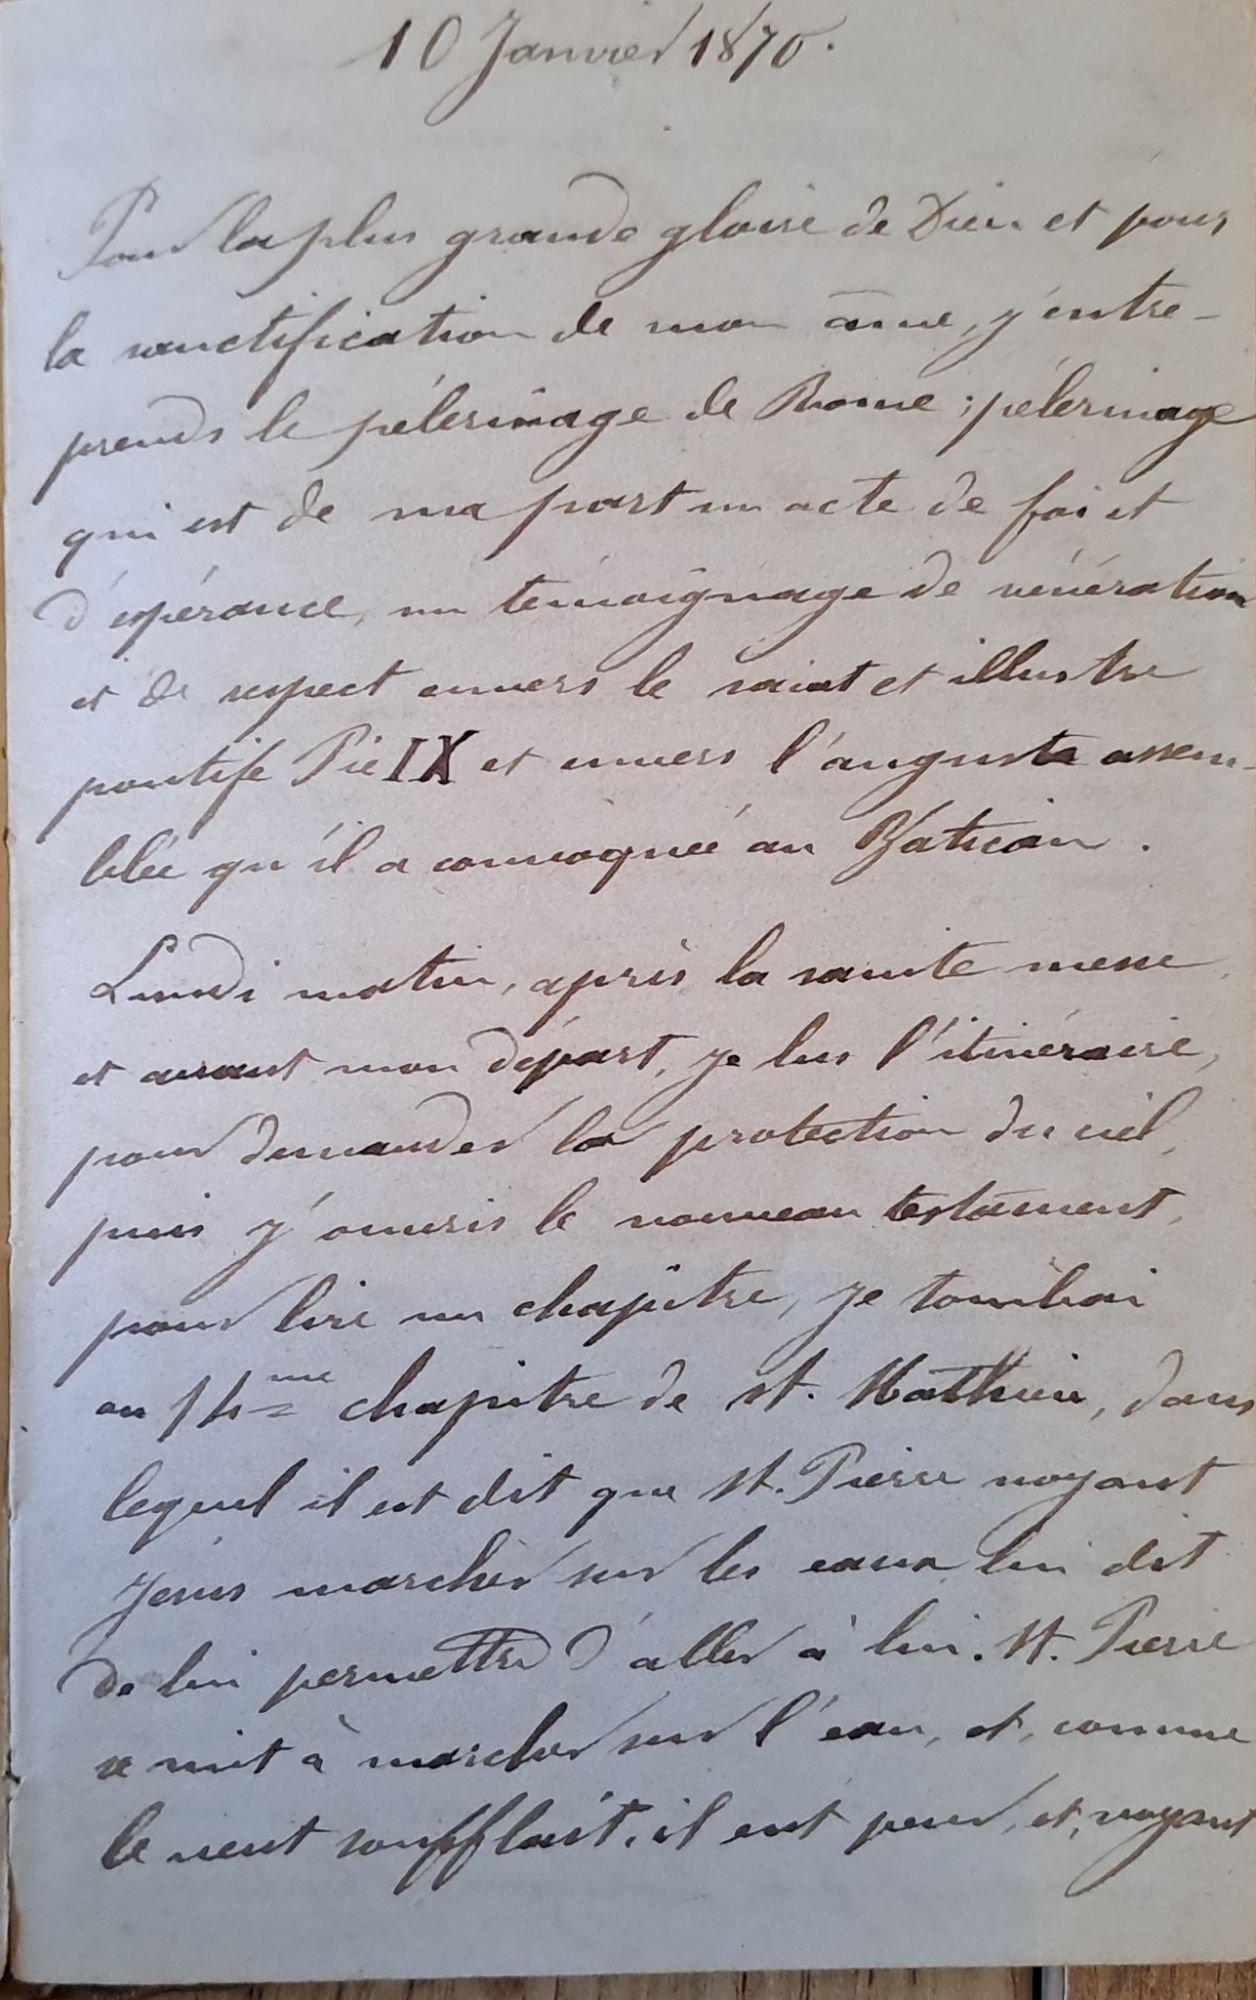 10 Janvier 1870.
Pour la plus grande gloire de Dieu et pour
la sanctification de mon âme, j'entre-
prends le pélerinage de Rome ; pélerinage
qui est de ma part un acte de foi et
d'espérance, un témoignage de vénération
et de respect envers le saint et illustre
pontife Pie IX et envers l'auguste assem-
blée qu'il a convoquée au Vatican.
Lundi matin, après la sainte messe
et avant mon départ, je lus l'itinéraire,
pour demander la protection du ciel,
puis j'ouvris le nouveau testament,
pour lire un chapître, je tombai
au 14me chapitre de st. Mathieu, dans
lequel il est dit que St. Pierre voyant
Jésus marcher sur les eaux lui dit
de lui permettre d'aller à lui. St. Pierre
se mit à marcher sur l'eau, et, comme
le vent soufflait, il eut peur, et, voyant